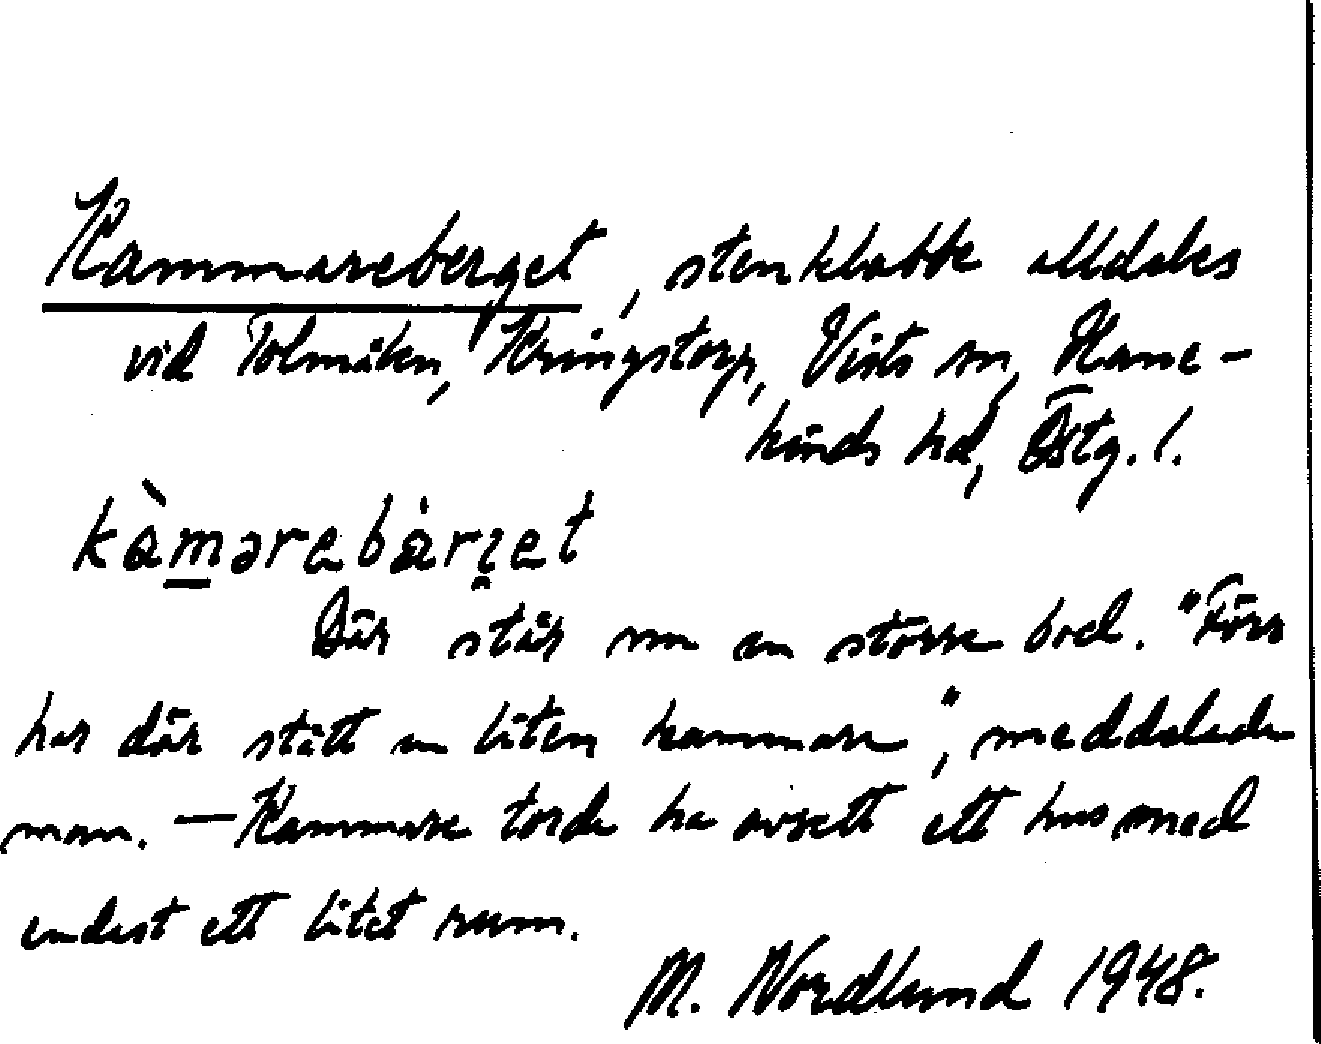 Kammareberget, stenklabbe alldeles
vid Tolmåken, Kringstorp, Vists sn, Hane-
kinds hd, Östg. l.
kàmarebàrget
Där står nu en större bod. "Förr
har där stått en liten kammare", meddelade
man. — Kammare torde ha avsett ett hus med
endast ett litet rum.
M. Nordlund 1948.